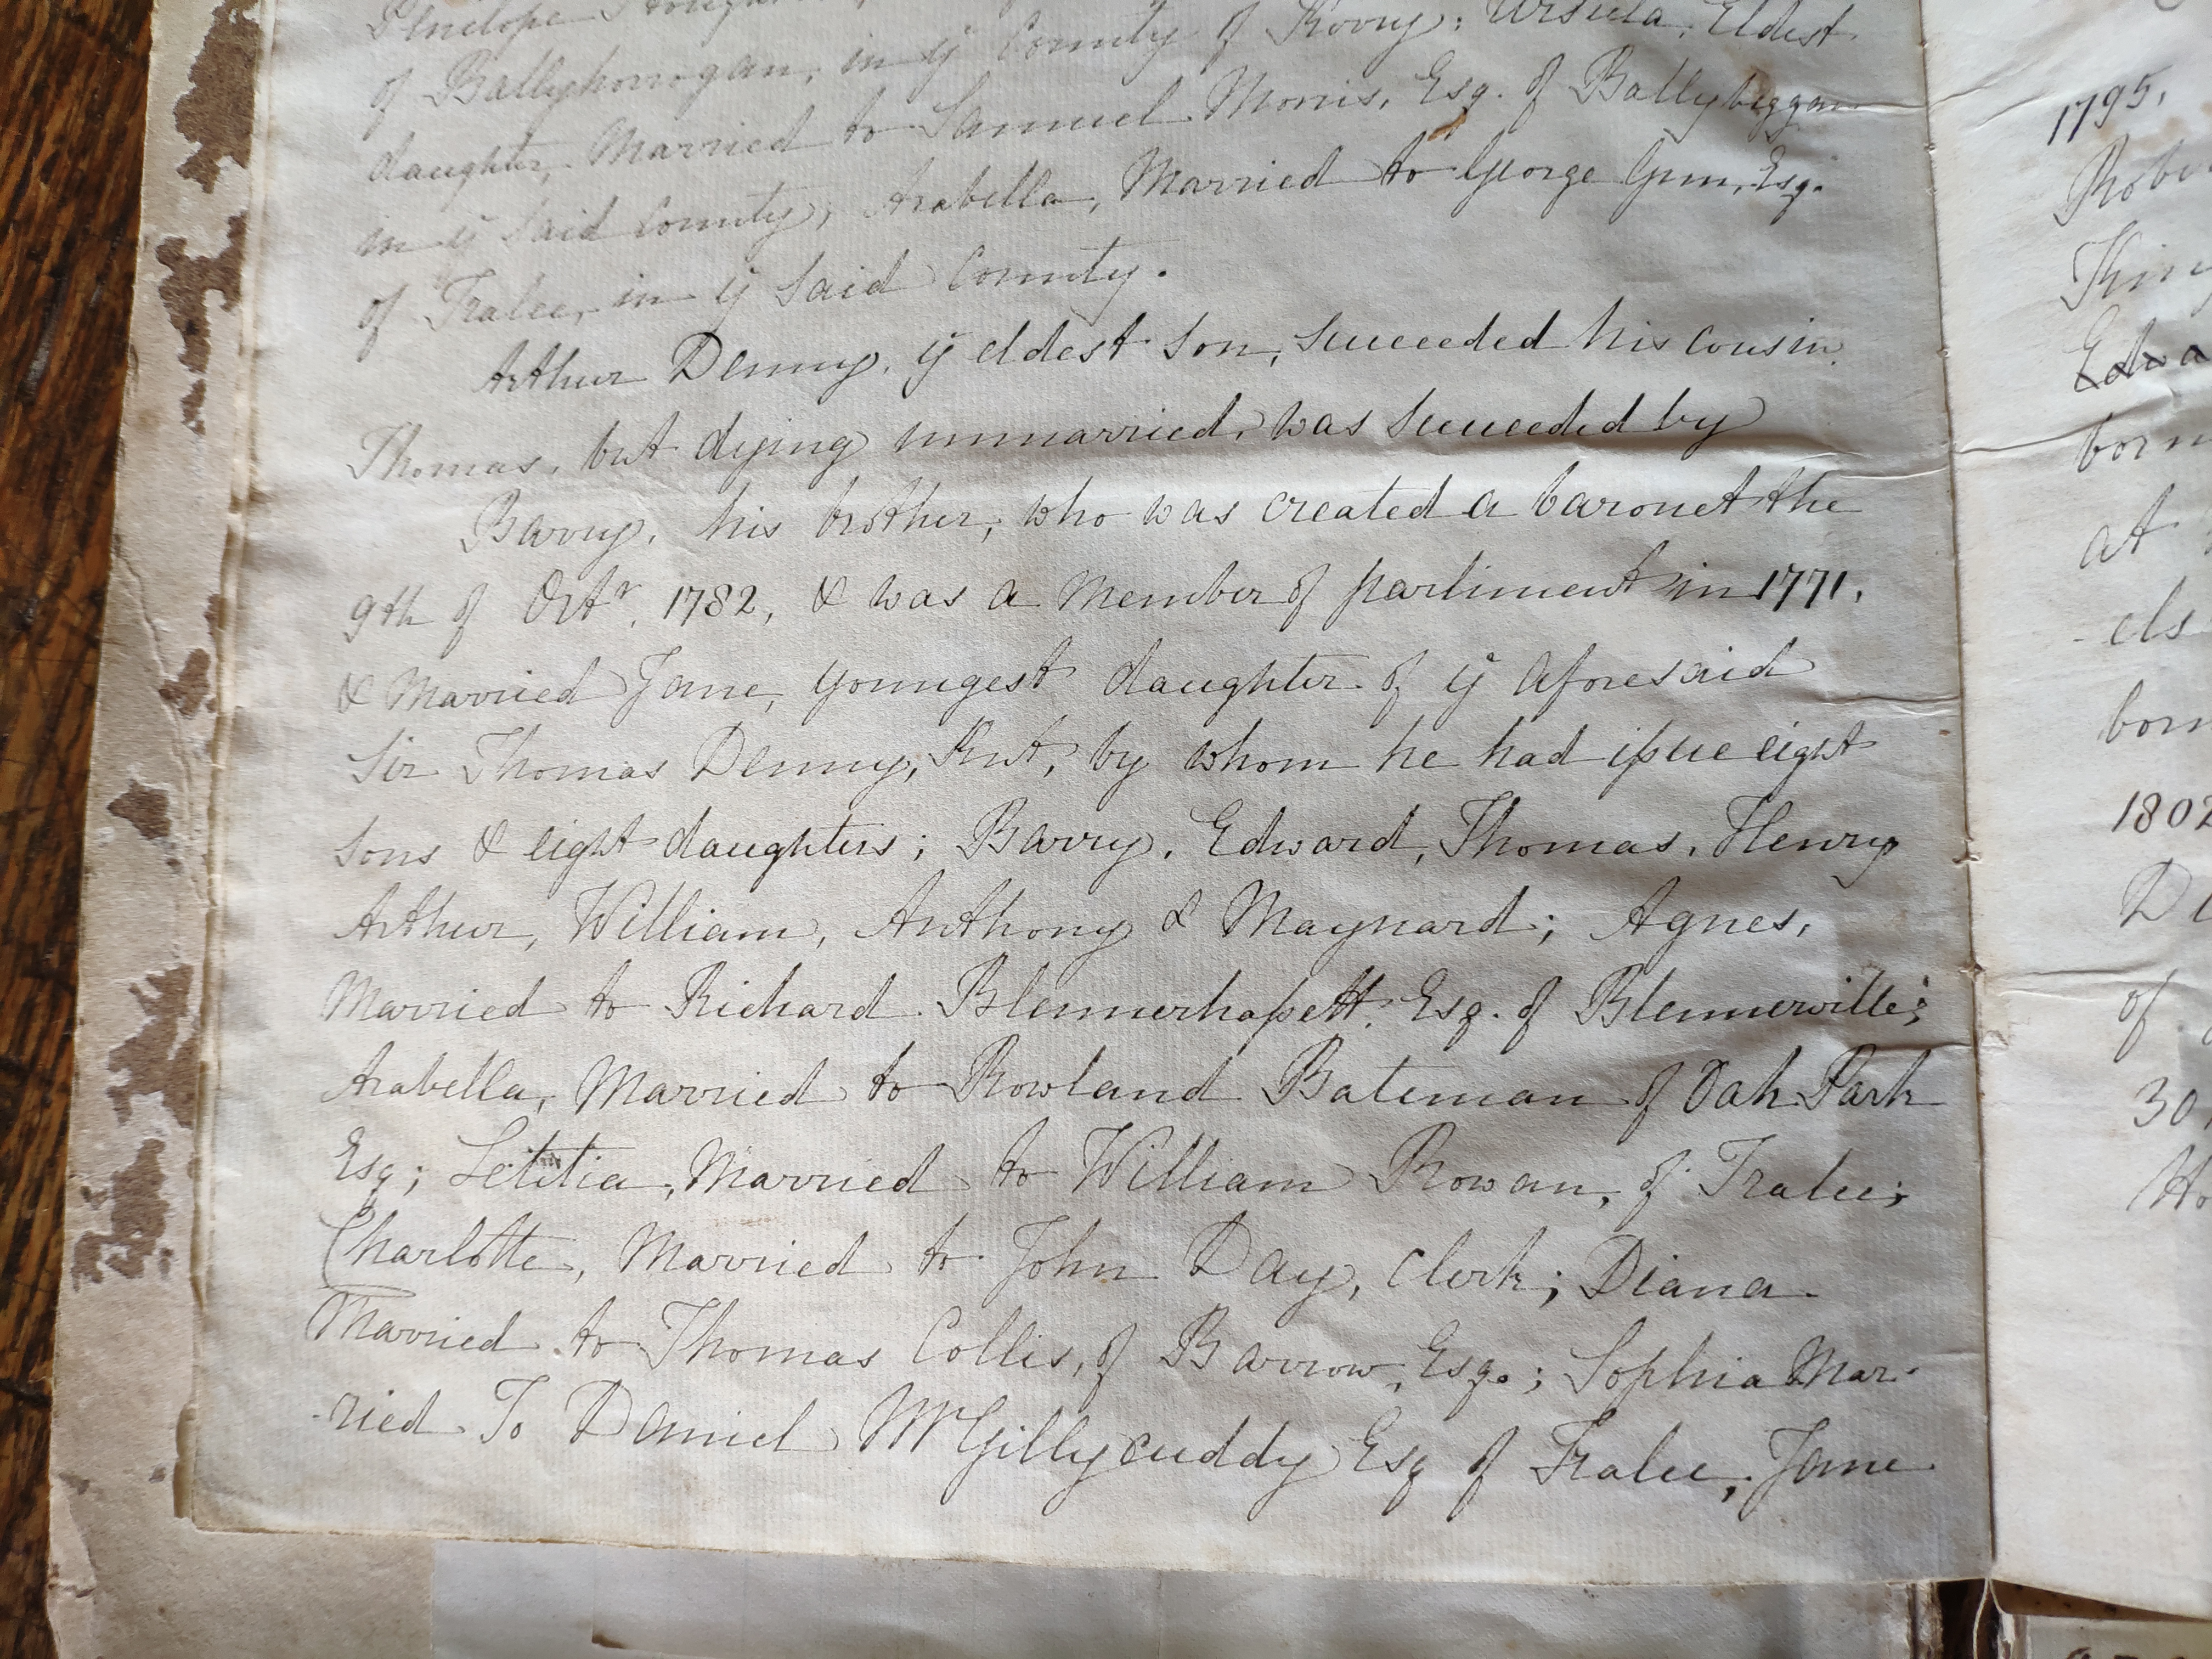 Penelope
of Ballyhonogan, in ye County of Kerry; Ursula, Eldest
daughter, Married to Samuel Morris, Esq. of Ballybeggan
in ye Said County; Arabella, Married to George Gun, Esq.
of Tralee, in ye Said County.
Arthur Denny, ye eldest Son, Succeeded his cousin
Thomas, but dying unmarried, was Succeeded by
Barry, his brother, who was created a baronet the
9th of Octr, 1782, & was a Member of parliment in 1771,
& Married Jane, youngest daughter of ye aforesaid
Sir Thomas Denny, Knt, by whom he had issue eight
Sons & eight daughters; Barry, Edward, Thomas, Henry
Arthur, William, Anthony & Maynard; Agnes,
Married to Richard Blennerhassett, Esq. of Blennerville;
Arabella, Married to Rowland Bateman of Oak Park
Esq; Letitia, Married to William Rowan, of Tralee;
Charlotte, Married to John Day, Clerk; Diana
Married to Thomas Collis, of Barrow, Esq.; Sophia Mar-
-ried To Daniel McGillycuddy Esq of Tralee; Jane
1795,
born
at
born
1802
of
30,